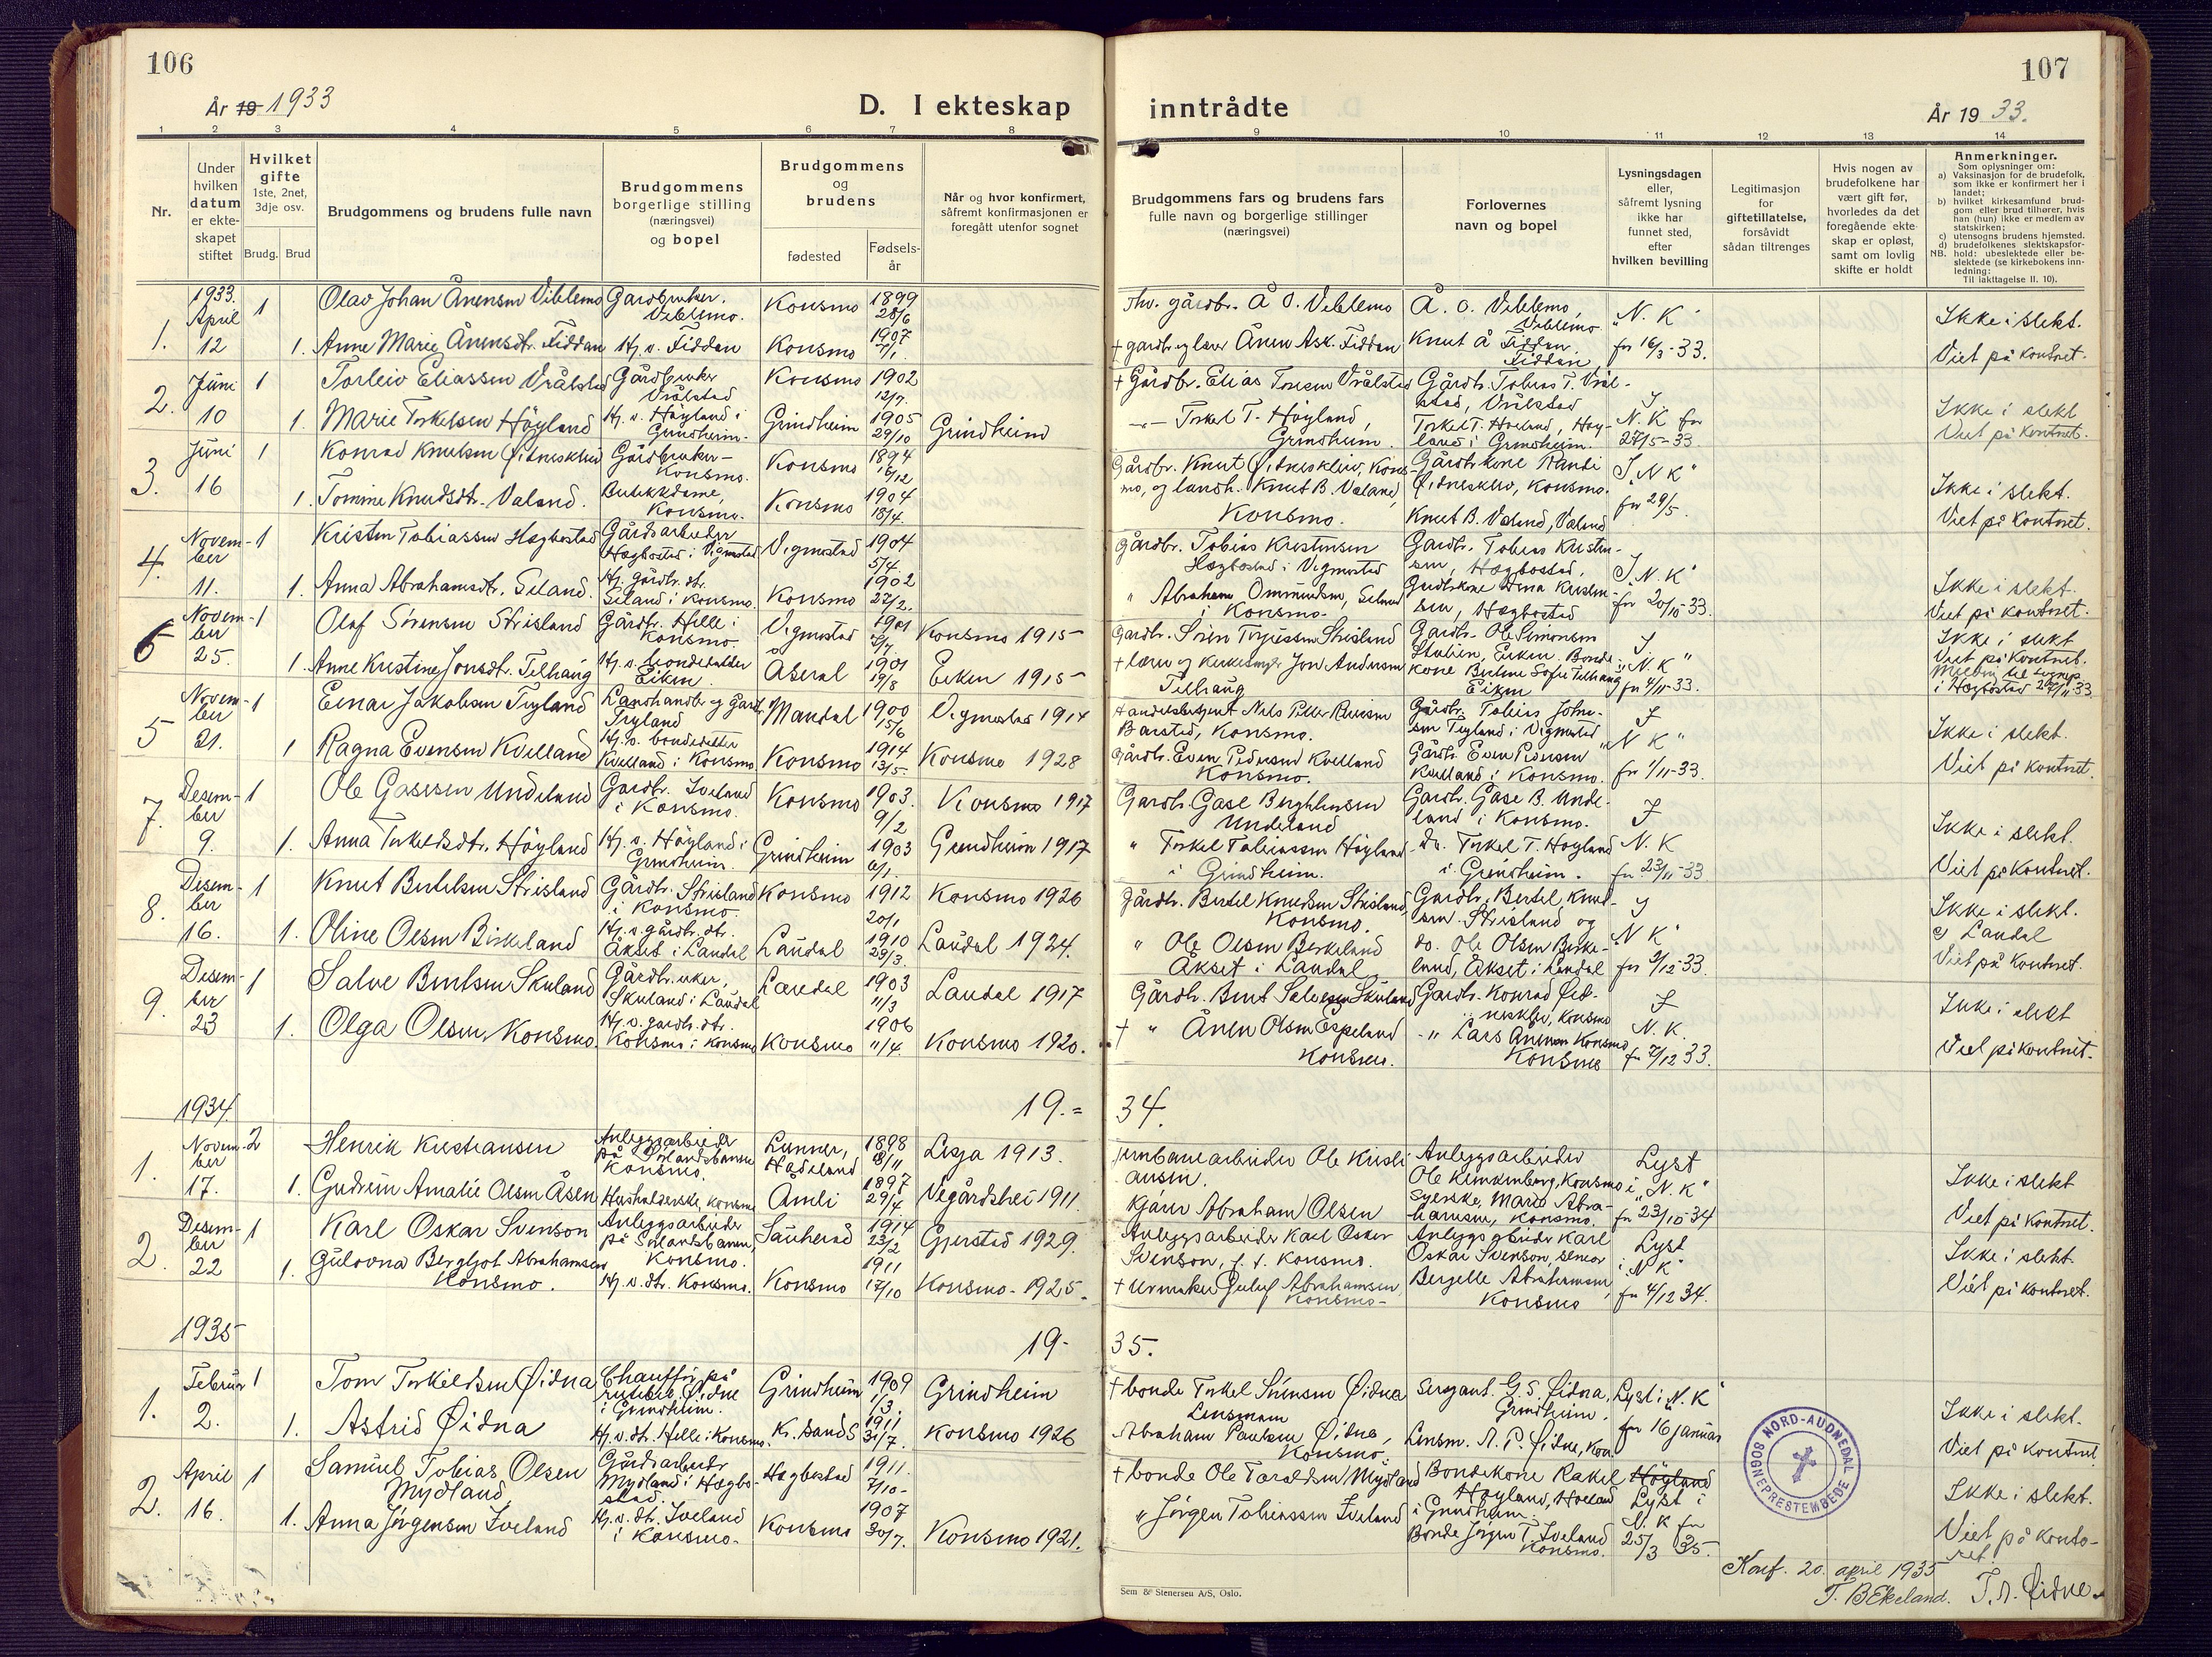 106
År 19 1933
D. I ekteskap
1 2 3 4 5 6 7 8
Nr.
Under hvilken datum er ekteskapet stiftet
Hvilket gifte
1ste, 2net, 3dje osv.
Brudg. Brud
Brudgommens og brudens fulle navn
Brudgommens borgerlige stilling (næringsvei) og bopel
Brudgommens og brudens
fødested
Fødsels-år
Når og hvor konfirmert, såfremt konfirmasjonen er foregått utenfor sognet
1933.
April
12
1. 1 Olav Johan Ånensen Viblemo Gardbruker. Viblemo. Konsmo 1899 28/6
1. Anne Marie Ånensdt. Fiddan Hj.v. Fiddan Konsmo 1907
2. Juni 10 1 Torleiv Eliassen Vrålstad Gårdbruker Vrålstad Konsmo 1902 12/7.
1. Marie Torkelsen Høyland Hj.v. Høyland i Grindheim. Grindheim 1905 29/10 Grindheim
3. Juni 16 1 Konrad Knutsen Øidneskleiv Gårdbruker Konsmo. Konsmo 1894 16/12
1. Tomine Knudsdt. Valand. Butikkdame, Konsmo. Konsmo 1904 18/4.
4. November 11. 1 Kristen Tobiassen Hægbostad Gårdsarbeider Hægbostad i Vigmostad Vigmostad 1904 5/4.
1. Anna Abrahamsdt. Seland. Hj. gårdbr. dt. Seland i Konsmo. Konsmo 1902 27/2.
6 November 25. 1 Olaf Sørensen Strisland Gårdbr. Helle i Konsmo. Vigmostad 1901 Konsmo 1915
1. Anne Kristine Jonsdt. Telhaug Hj.v. bondedatter Eiken Åseral 1901 19/8 Eiken 1915
5 November 21. 1 Einar Jakobsen Tryland Landhandler og Gardbr. Tryland Mandal 1900 15/6 Vigmostad 1914
1 Ragna Evensen Kvelland Hj.v. bondedatter Kvelland i Konsmo Konsmo 1914 13/5. Konsmo 1928
7. Desember 9. 1 Ole Gasesen Undeland Gardbr. Iveland i Konsmo. Konsmo 1903. 9/2 Konsmo 1917
1. Anna Torkelsdt. Høyland Hj.v. Høyland i Grindheim. Grindheim 1903 6/1. Grindheim 1917
8. Desember 16. 1 Knut Bertelsen Strisland Gårdbr. Strisland i Konsmo. Konsmo 1912 20/1 Konsmo 1926
1. Oline Olsen Birkeland Hj.v. gårdbr. dtr. Åkset i Laudal Laudal 1910 29/3. Laudal 1924.
9. Desember 23 1 Salve Berntsen Skuland Gårdbruker, Skuland i Laudal Laudal 1903 11/3 Laudal 1917
1. Olga Olsen, Konsmo. Hj.v. gardb. dtr. Konsmo i Konsmo Konsmo 1906 11/4. Konsmo 1920.
1934. 19.=
1. November 17. 2 Henrik Kristiansen Anleggsarbeider på Sørlandsbanen Konsmo. Lunner, Hadeland 1898 8/11 Lesja 1913.
1. Gudrun Amalie Olsen Åsen Husholderske, Konsmo Åmli 1897 29/4 Vegårdshei 1911.
2. Desember 22 1 Karl Oskar Svenson Anleggsarbeider på Sørlandsbanen, Konsmo. Sauherad 1914 23/2 Gjerstad 1929.
1. Gulovna Bergljot Abrahamsen Konsmo. Hj.v. dtr. Konsmo. Konsmo 1911 17/10 Konsmo - 1925.
1935 19-
1. Februar 2. 1 Tom Torkeldsen Øidna Chauffør på rutebil Øidne i Grindheim. Grindheim 1909 1/3. Grindheim
1. Astrid Øidna Hj.v. dt. Helle i Konsmo. Kr. sand S 1911 31/7. Konsmo 1926
2. April 16. 1 Samuel Tobias Olsen Mydland Gårdsarbeider Mydland i Hægbostad. Hægbostad 1911. 7/10
1. Anna Jørgensen Iveland Hj.v. dt. Iveland i Konsmo. Konsmo 1907 30/7. Konsmo 1921.
107
inntrådte
År 19 33.
9 10 11 12 13 14
Brudgommens fars og brudens fars fulle navn og borgerlige stillinger (næringsvei)
Forlovernes navn og bopel
Lysningsdagen eller, såfremt lysning ikke har funnet sted, efter hvilken bevilling
Legitimasjon for giftetillatelse, forsåvidt sådan tiltrenges
Hvis nogen av brudefolkene har vært gift før, hvorledes da det foregående ekteskap er opløst, samt om lovlig skifte er holdt
Anmerkninger.
Som oplysninger om:
a) Vaksinasjon for de brudefolk, som ikke er konfirmert her i landet;
b) hvilket kirkesamfund brudgom eller brud tilhører, hvis han (hun) ikke er medlem av statskirken;
c) utensogns brudens hjemsted.
d) brudefolkenes slektskapsforhold: ubeslektede eller beslektede (se kirkebokens innledning:
NB.
Til iakttagelse II. 10).
Thv. gårdbr. Å O. Viblemo Å. O. Viblemo, Viblemo „N. K" Ikke i slekt.
+ gardbr og lærer Ånen Ask. Fiddan Knut Å Fiddan Fiddan fr 16/3-33. Viet på kontoret.
+ Gårdbr. Elias Toresen Vrålstad Gårdb. Tobias T. Vrålstad, Vrålstad I N. K fr 27/5-33. Ikke i slekt
Torkel T. Høyland, Grindheim. Torkel T. Høiland, Høyland i Grindheim. Viet på kontoret.
Gårdbr. Knut Øidneskleiv, Konsmo, og landh. Knut B. Valand, Konsmo. Gårdbrkone Randi Øidneskleiv, Konsmo. Knut B. Valand, Valand I „N K" fr 29/5. Ikke i slekt. Viet på kontoret.
Gårdbr. Tobias Kristensen Hægbostad i Vigmostad Gardbr. Tobias Kristensen, Hægbostad, I „N. K" fr 20/10-33. Ikke i slekt.
" Abraham Ommundsen, Seland i Konsmo. Viet på kontoret.
Gardbr. Søren Strisland Gardbr. Ole Simonsen I „N. K" fr 4/11-33. Ikke i slekt Viet på kontoret.
+ lærer og kirkesanger Jon Andersen Telhaug Bondekone Sofie Telhaug Eiken i Hægbostad
Nils Peter Barstad, Konsmo. Gårdbr. Tobias Johnsen Tryland i Vigmostad I „N K" fr 1/11-33. Ikke i slekt.
Gårdbr. Even Pedersen Kvelland Konsmo. Gårdbr. Even Pedersen Kvelland i Konsmo. Viet på kontoret.
Gardbr. Gase Undeland Gardbr. Gase B. Undeland i Konsmo. I N. K fr 23/11-33 Ikke i slekt.
" Torkel Tobiassen Høyland i Grindheim. Do. Torkel T. Høyland i Grindheim. Viet på kontoret.
Gårdbr. Bertel Knudsen Strisland, Konsmo. Gardbr. Bertel Knutsen Strisland og I „N K" Ikke i slekt. c) Laudal
" Ole Olsen Birkeland Åkset i Laudal do. Ole Olsen Birkeland, Åkset i Laudal Viet på kontoret.
Gårdbr. Bernt Salvesen Skuland Gardb. Konrad Øidneskleiv, Konsmo I N. K. fr 7/12 33. Ikke i slekt
+ " Ånen Olsen Espeland Konsmo. " Lars Ånensen Konsmo Konsmo Viet på kontoret.
34.
Jernbanearbeider Ole Kristiansen. Anleggsarbeider Ole Konsmo Lyst i „N. K" fr 23/10-34 Ikke i slekt
Abraham Olsen syerske, Marie Abrahamsen, Konsmo. Viet på kontoret.
Anleggsarbeider Karl Oskar Svenson, f. t. Konsmo. Anleggsarbeider Karl Oskar Svenson, senior Lyst i „N K" fr 4/12 34. Ikke i slekt.
+ Urmaker Guluf Abrahamsen Konsmo Bergette Abrahamsen, Konsmo Viet på kontoret.
35.
+ bonde Torkel Sørensen Øidna Sersjant. G. S. Øidna, Grindheim. Lyst i „N. K" fr 16 januar Ikke i slekt.
Lensmann Abraham Paulsen Øidna, Konsmo. Lensm. A. P. Øidne, Kon. Viet på kontoret
+ bonde Ole Taraldsen Mydland Bondekone Rakel Høyland, Høiland i Grindheim. Høyland Lyst i N. K fr 25/3 35. Ikke i slekt.
" Jørgen Tobiassen Iveland Bonde Jørgen T. Iveland Konsmo. Viet på kontoret.
SOGNEPRESTEMBEDE NORD-AUDNEDAL
Konf. 20. april 1935
T. B Ekeland. T. A. Øidne
Sem & Stenersen A/S, Oslo.